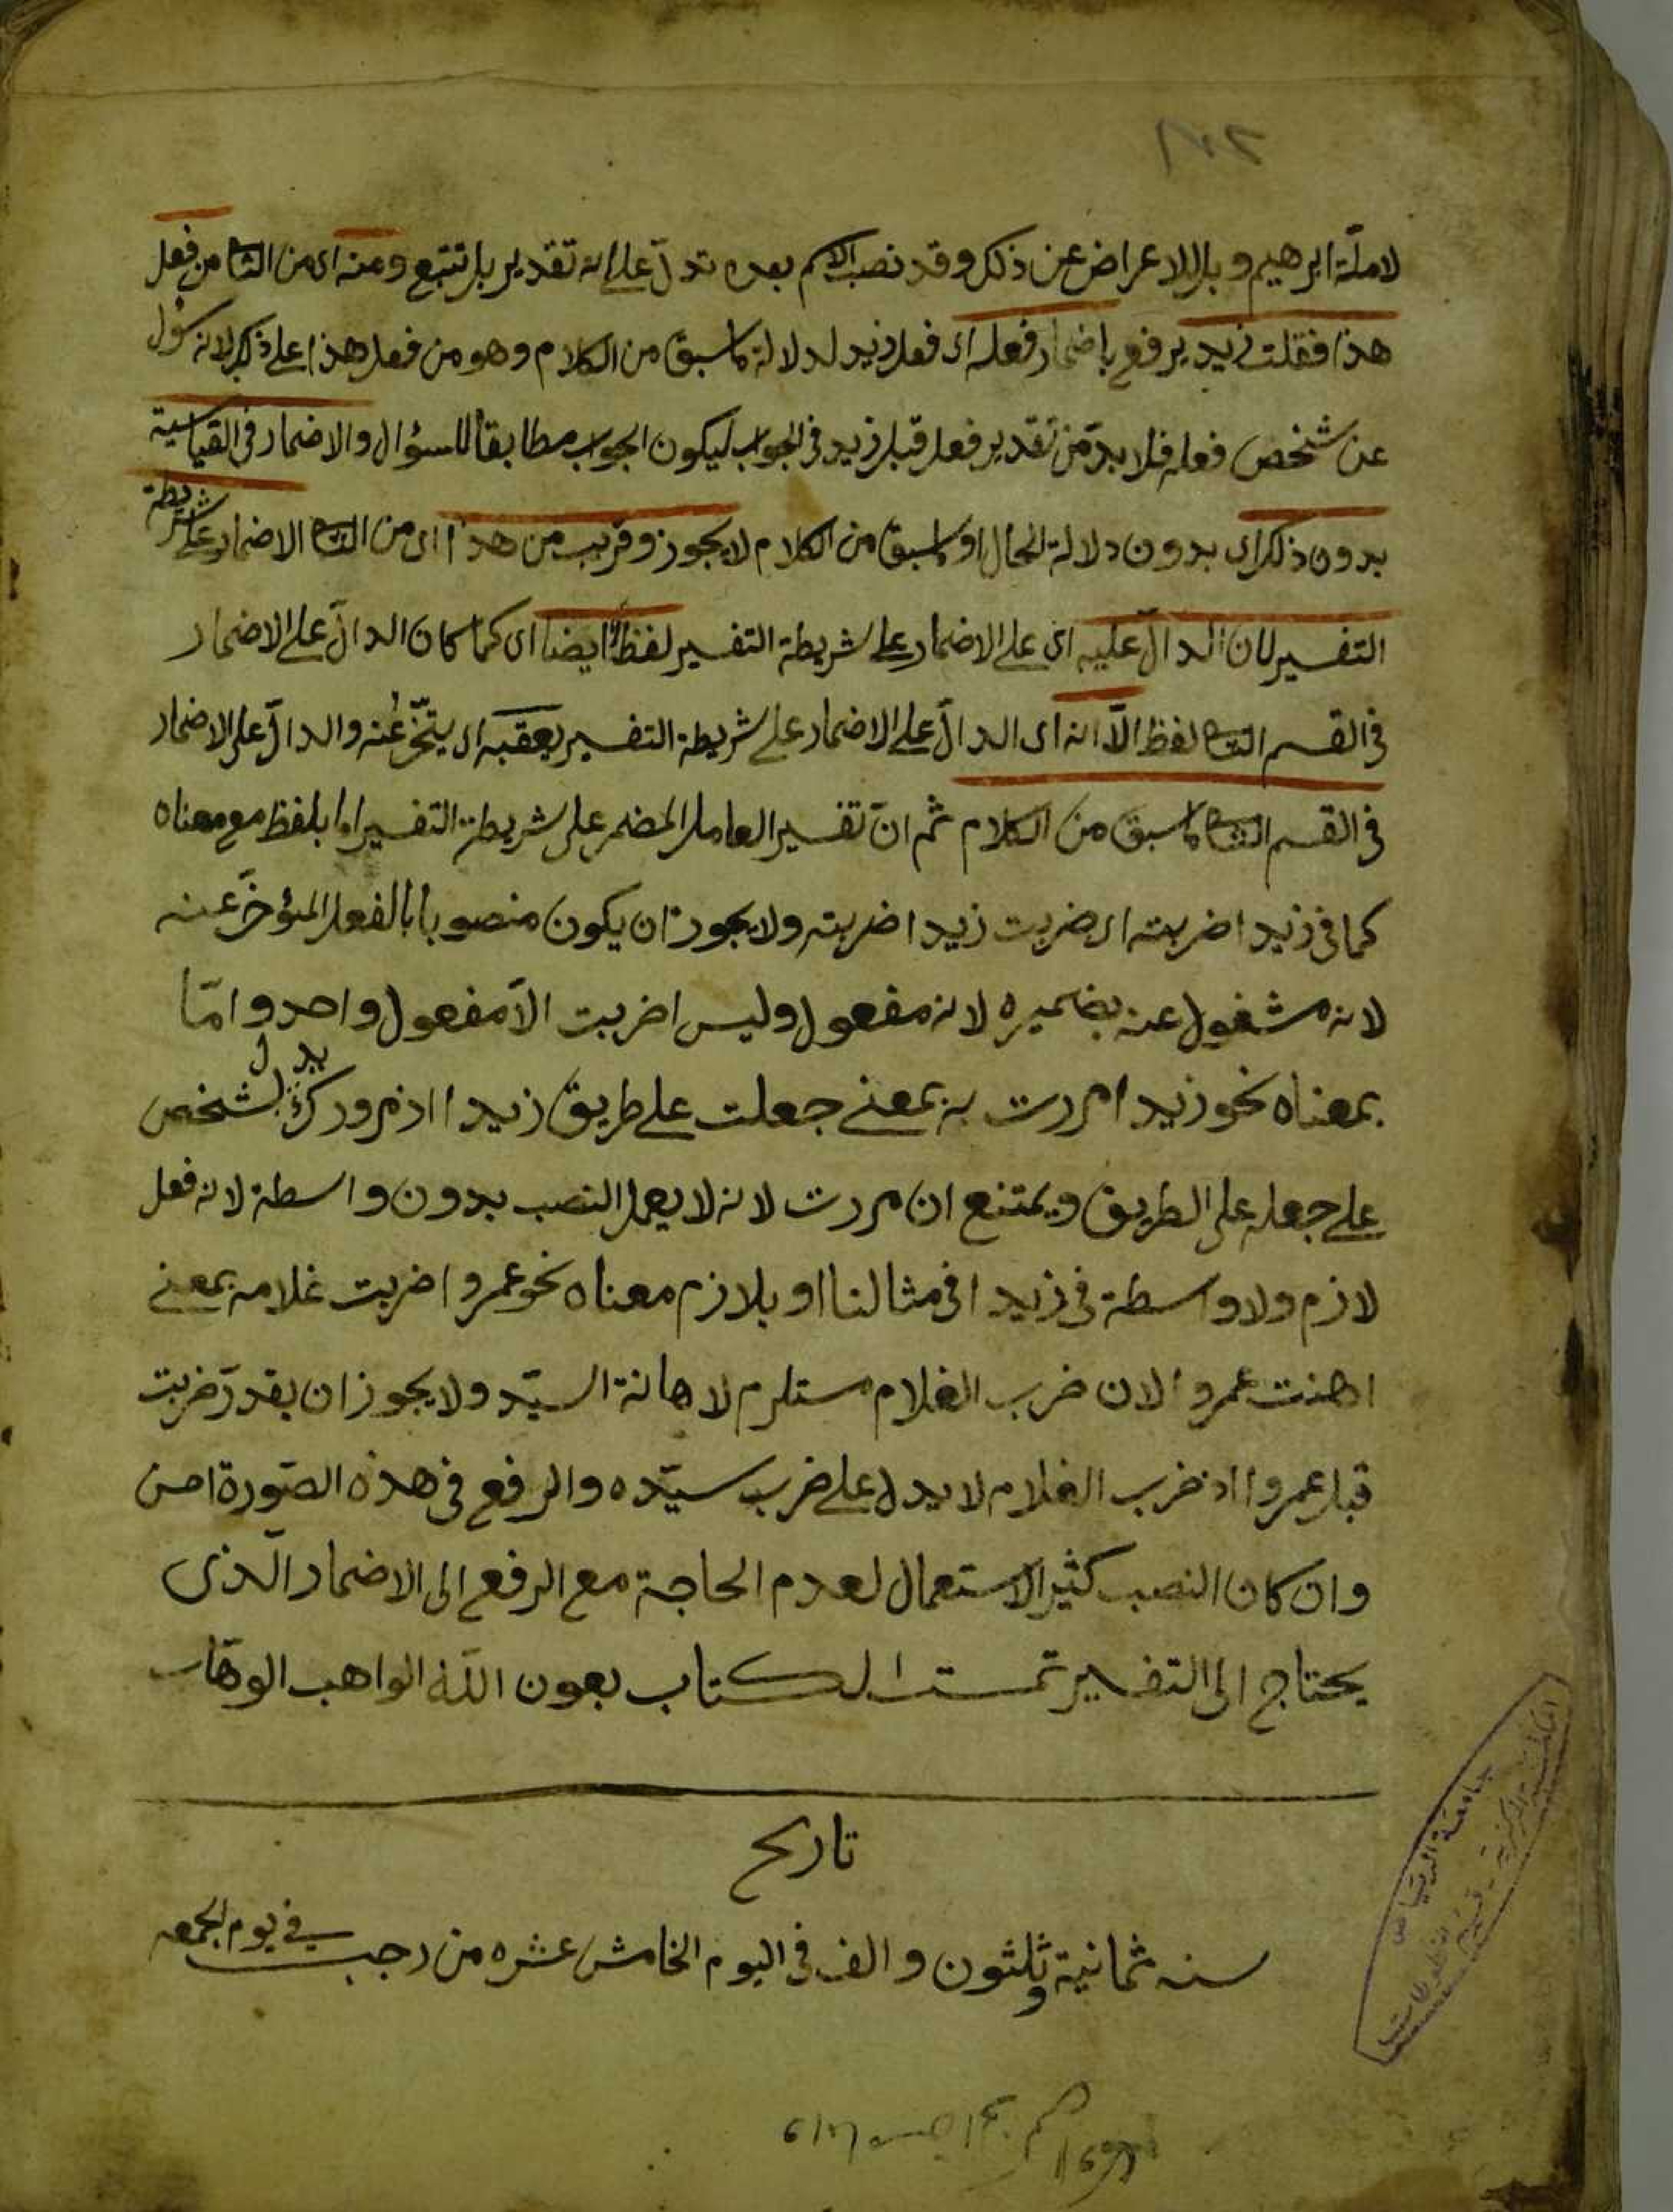 ١٠٢
لا ملّة ابرهيم وبل للاعراض عن ذلك وقد نصب الاسم بعده تدلّ على انه تقدير بل نتبع ومنه اى من الثانى من فعل
هذا فقلت زيد يرفع باضمار فعله اى فعل زيد لدلالة ما سبق من الكلام وهو من فعل هذا على ذلك لانه سؤل
عن شخص فعله فلا بدّ من تقدير فعل قبل زيد فى الجواب ليكون الجواب مطابقا للسؤال والاضمار فى القياسية
بدون ذلك اى بدون دلالة الحال او ما سبق من الكلام لا يجوز وقريب من هذا اى من الثانى الاضمار على شريطة
التفسير لان الدالّ عليه اى على الاضمار على شريطة التفسير لفظ ايضا اى كما كان الدالّ على الاضمار
فى القسم الثانى لفظ الّا انه اى الدالّ على الاضمار على شريطة التفسير يعقبه اى يتأخّر عنه والدالّ على الاضمار
فى القسم الثانى ما سبق من الكلام ثم انّ تفسير العامل المضمر على شريطة التفسير اما بلفظ مع معناه
كما فى زيدا ضربته اى ضربت زيدا ضربته ولا يجوز ان يكون منصوبا بالفعل المؤخّر عنه
لانه مشغول عنه بضميره لانه مفعول وليس لضربت الّا مفعول واحد وامّا
بمعناه نحو زيدا مررت به بمعنى جعلت على طريق زيدا اذ مرورك بشخص يدل
على جعله على الطريق ويمتنع ان مررت لانه لا يعمل النصب بدون واسطة لانه فعل
لازم ولا واسطة فى زيدا فى مثالنا او بلازم معناه نحو عمروا ضربت غلامه بمعنى
اهنت عمروا لان ضرب الغلام مستلزم لاهانة السيّد ولا يجوز ان يقدر ضربت
قبل عمروا اذ ضرب الغلام لا يدل على ضرب سيّده والرفع فى هذه الصّورة احسن
وان كان النصب كثير الاستعمال لعدم الحاجة مع الرفع الى الاضمار الّذى
يحتاج الى التفسير تمت الكتاب بعون اللّه الواهب الوهّاب
تاريخ
سنه ثمانية وثلثون والف فى اليوم الخامس عشره من رجب فى يوم الجمعه
جامعة الرياض
المكتبة المركزية - قسم المخطوطات